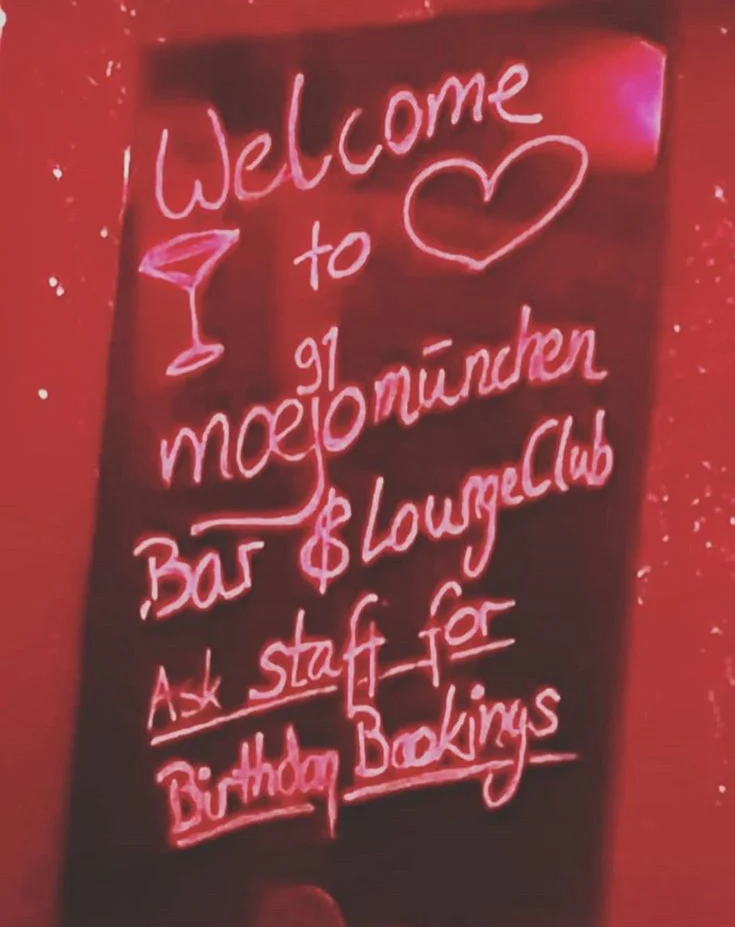 Welcome
to
91
moejo münchen
Bar & Lounge Club
Ask staff for
Birthday Bookings